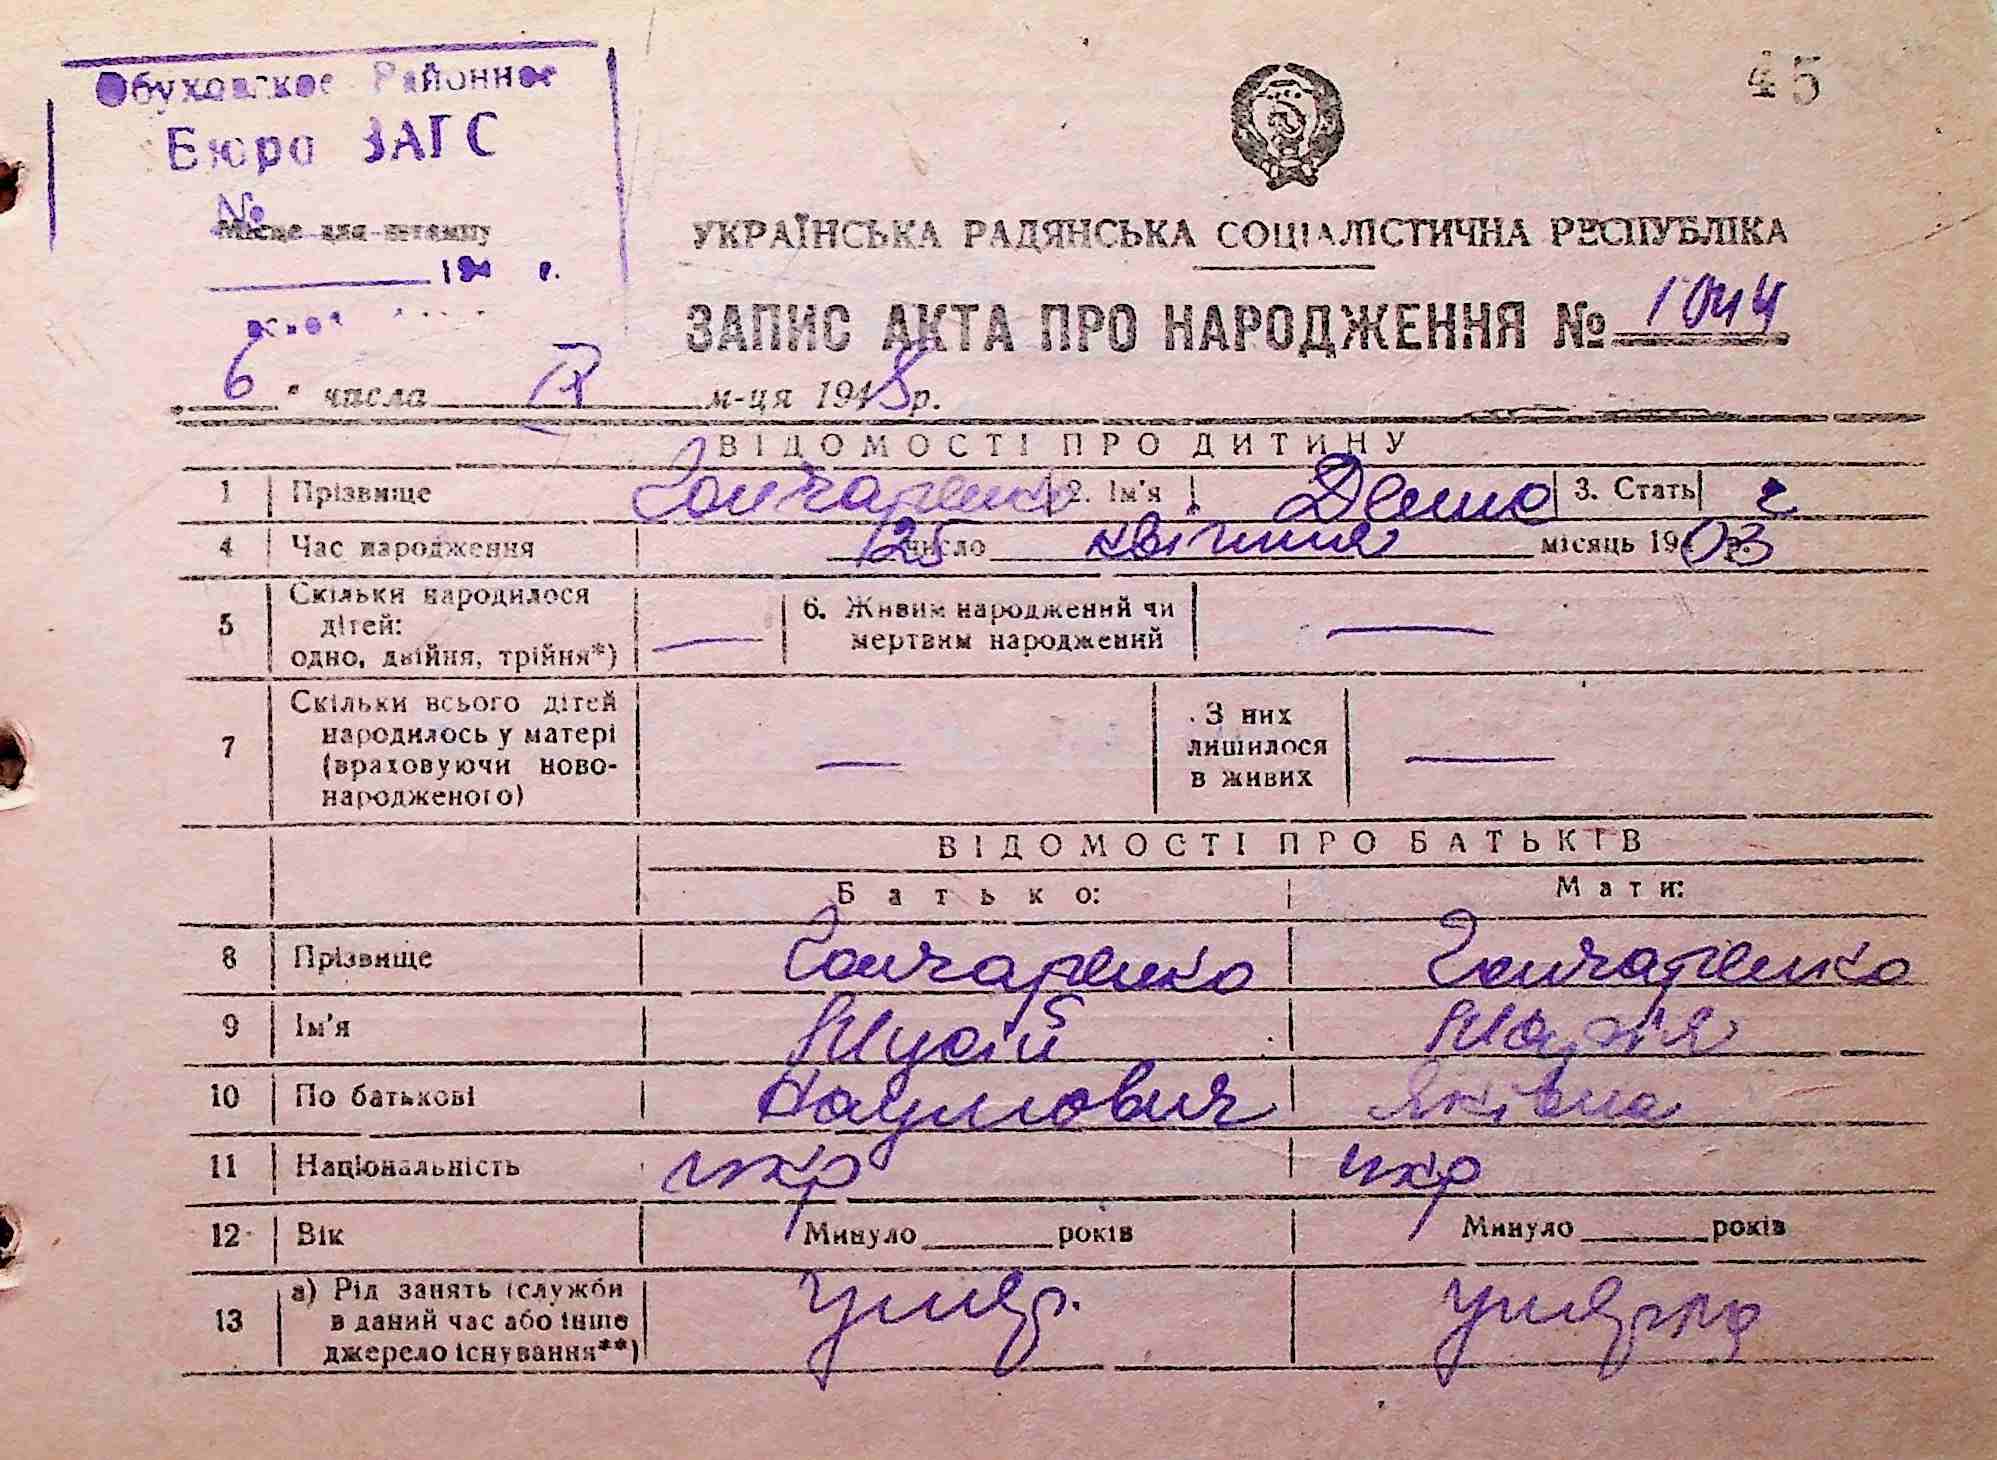 45
Обуховское Районное
Бюро ЗАГС
№
Місце для штампу
19 г.
УКРАЇНСЬКА РАДЯНСЬКА СОЦІАЛІСТИЧНА РЕСПУБЛІКА
ЗАПИС АКТА ПРО НАРОДЖЕННЯ № 1044
6 " числа IX м-ця 1948 р.
ВІДОМОСТІ ПРО ДИТИНУ
1 Прізвище Гончаренко 2. Ім'я Демид 3. Стать ч
4 Час народження 25 число квітня місяць 1903 р.
5 Скільки народилося дітей: одно, двійня, трійня*) — 6. Живим народжений чи мертвим народжений —
7 Скільки всього дітей народилось у матері (враховуючи новонародженого) — З них лишилося в живих —
ВІДОМОСТІ ПРО БАТЬКІВ
Батько: Мати:
8 Прізвище Гончаренко Гончаренко
9 Ім'я Мусій Марія
10 По батькові Наумович Яківна
11 Національність укр укр
12 Вік Минуло ______ років Минуло ______ років
13 а) Рід занять (служби в даний час або інше джерело існування**) Умер. Умерла